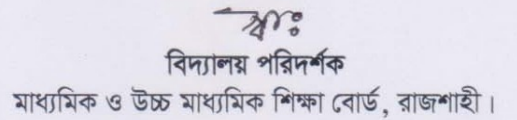 স্বাঃ
বিদ্যালয় পরিদর্শক
মাধ্যমিক ও উচ্চ মাধ্যমিক শিক্ষা বোর্ড, রাজশাহী।